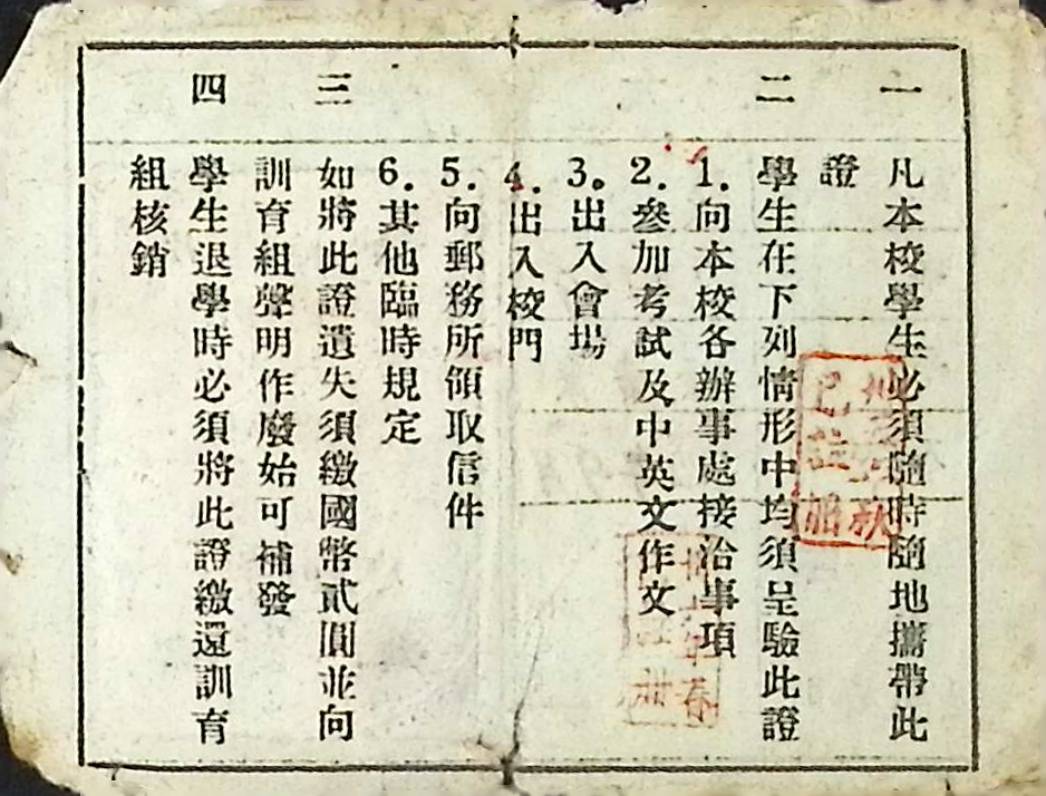 一 凡本校學生必須隨時隨地攜帶此
證
二 學生在下列情形中均須呈驗此證
1.向本校各辦事處接洽事項
2.參加考試及中英文作文
3。出入會場
4.出入校門
5.向郵務所領取信件
6.其他臨時規定
三 如將此證遺失須繳國幣貳圓並向
訓育組聲明作廢始可補發
四 學生退學時必須將此證繳還訓育
組核銷
秋
已註册
年春
册